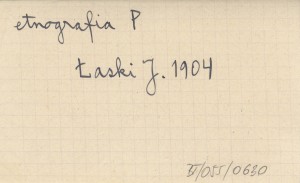 etnografia P
Łaski J. 1904
IV/055/0630